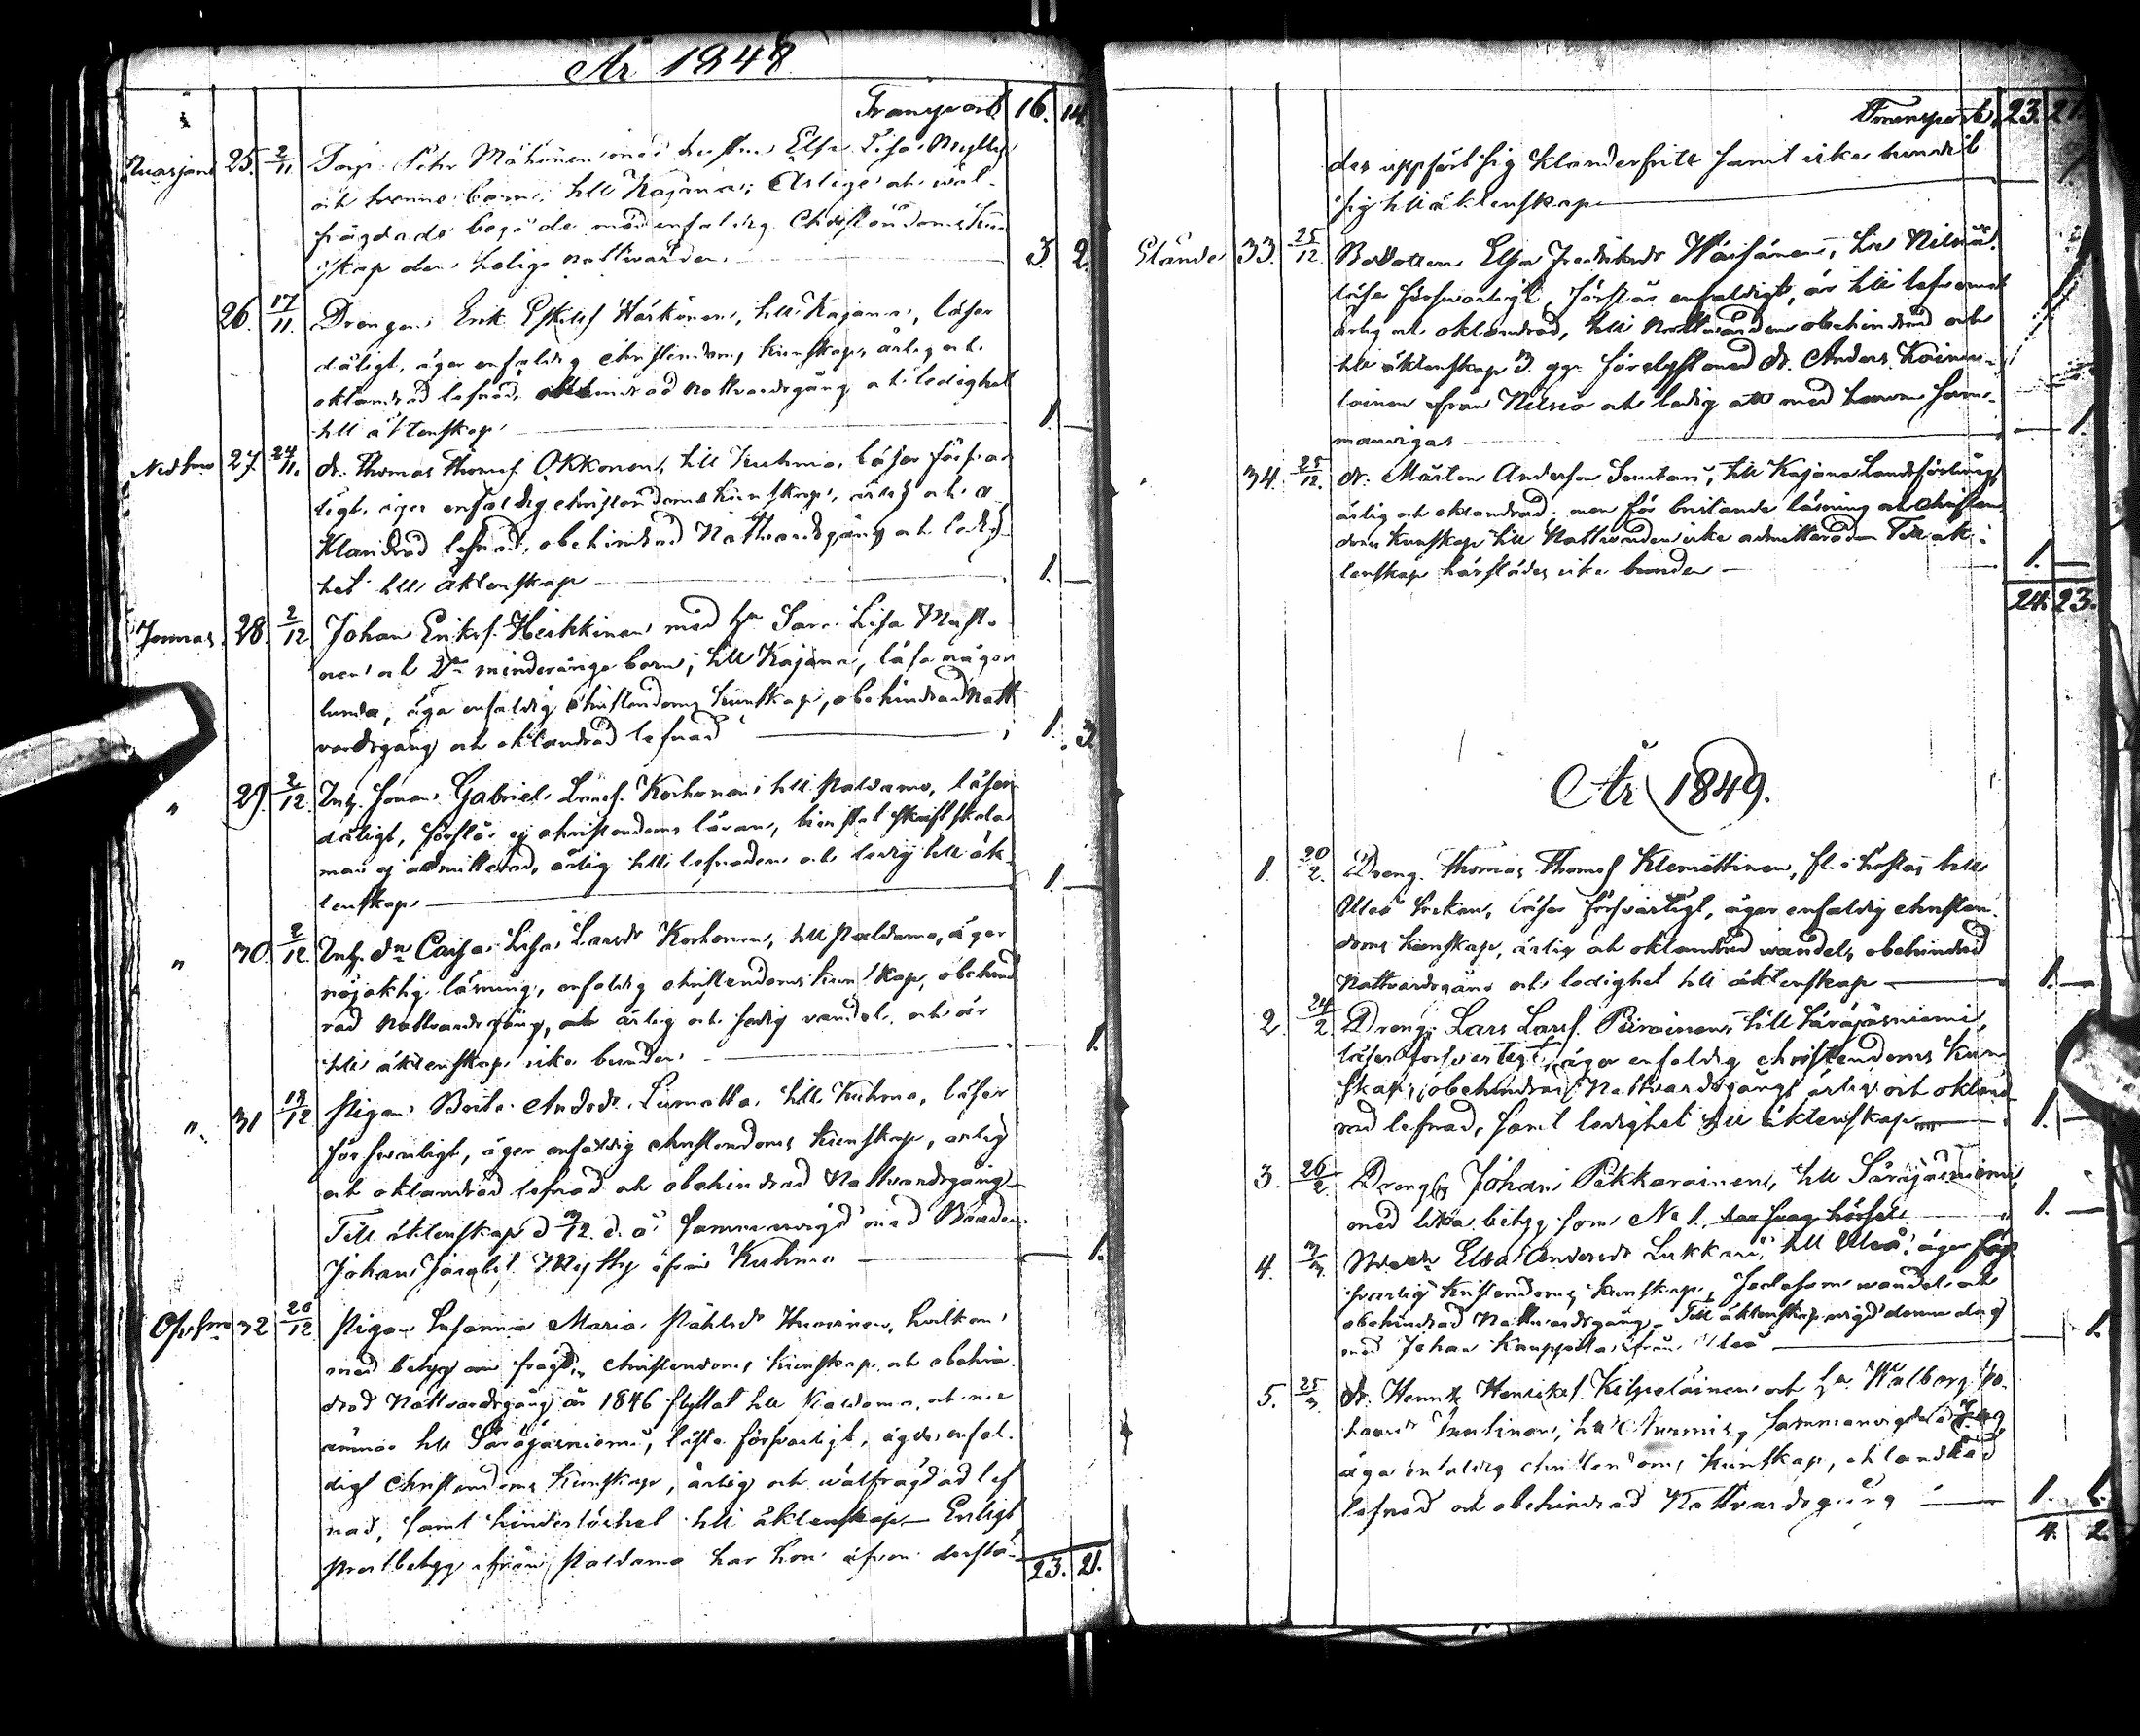 År 1848
Transport. 16. 14.
25. 2/11 Torp. Pehr Mähönen med hustru Elsa Lisa
och tvenne barn, till Kajana; Ärlige och wäl-
frägdade begå de med enfaldig Christendoms kun
skap den helige nattvarden 3. 2.
26. 17/11. Drengen Erik Härkönen, till Kajana, läser
dåligt, äger enfaldig christendoms kunskap, ärlig och
oklandrad lefnad, obehindrad nattvardsgång och ledighet
till äktenskap 1. —
27. 24/11. dr. Thomas Thomss. Okkonen, till Kuhmo, läser försvar
ligt, äger enfaldig christendoms kunskap, ärlig och o
klandrad lefnad, obehindrad Nattvardsgång och ledig
het till äktenskap 1. —
Jormas 28. 2/12 Johan Eriks. Heikkinen med hu Sara Lisa Musto
nen och 2ne minderåriga barn; till Kajana, läsa någor
lunda, äga enfaldig christendoms kunskap, obehindrad natt
vardsgång och oklandrad lefnad 1. 3
" 29. 2/12 Inh. sonen Gabriel Larss. Korhonen till Paldamo, läser
dåligt, förstår ej christendoms läran, bivistat skriftskola
men ej admitterad, ärlig till lefnaden och ledig till äk
tenskap 1. —
" 30. 2/12 Inh. dr Caisa Lisa Larsdr Korhonen, till Paldamo, äger
nöjaktig läsning, enfaldig christendoms kunskap, obehind
rad nattvardsgång, och ärlig och sedig vandel, och är
till äktenskap icke bunden — 1.
" 31 19/12 Pigan Brita Andersdr. Lumatta till Kuhmo, läser
försvarligt, äger enfaldig christendoms kunskap, ärlig
och oklandrad lefnad och obehindrad Nattvardsgång
Till äktenskap d. /12 d. å. sammanvigd med Bonden
Johan ifrån Kuhmo — 1.
32 26/12 Pigan Susanna Maria Påhlsdr hvilken
med betyg om christendoms kunskap och obehin
drad Nattvardsgång år 1846 flyttat till Paldamo, och nu
ämnar till Säräjäsniemi, läste försvarligt, ägde enfal-
dig Christendoms kunskap, ärlig och wälfrägdad lef
nad, samt hinderlöshet till äktenskap — Enligt
Prestbetyg ifrån Paldamo har hon äfven derstä-
23. 21.
Transport. 23. 21.
des uppfört sig klanderfritt samt icke bundit
sig till äktenskap — 1
33. 25/12 Elsa Fredriksdr Wäisänen, till Nilsiä.
läser försvarligt, förstår enfaldigt, är till lefvernet
ärlig och oklandrad, till Nattvarden obehindrad och
till äktenskap 3 ggr. förelyst med dr. Anders
lainen från Nilsiä och ledig att med honom sam-
manvigas — 1.
34. 25/12. dr. Mårten Anderson till Kajana Landsförsamg,
ärlig och oklandrad, men för bristande läsning och christen
doms kunskap till Nattvarden icke admitterad Till äk-
tenskap härstädes icke bunden 1. —
24. 23.
År 1849.
1. 20/2. Dreng. Thomas Thomss Klemettinen, till
Uleå socken, läser försvarligt, äger enfaldig christen-
doms kunskap, ärlig och oklandrad wandel, obehindrad
Nattvardsgång och ledighet till äktenskap 1. —
2. 24/2 Dreng. Lars Larss. Piirainen till Säräjäsniemi,
läser försvarligt, äger enfaldig christendoms kun
skap, obehindrad Nattvardsgång, ärlig och okland
rad lefnad, samt ledighet till äktenskap 1. —
3. 26/2. Dreng Johan Pikkarainen, till Säräjäsniemi,
med lika betyg som No 1. 1. —
4. Elsa Andersdr Lukkari, till Uleå, äger för
svarlig kristendoms kunskap, wandel och
obehindrad Nattvardsgång. Till äktenskap wigd denna dag
med Johan Kauppila från Uleå — 1.
5. 25/3 dr. Henrik Henriks. Kilpeläinen och hu Walborg Jo-
hansdr sammanvigda
äga enfaldig christendoms kunskap, oklandrad
lefnad och obehindrad Nattvardsgång 1. 1.
4. 2.